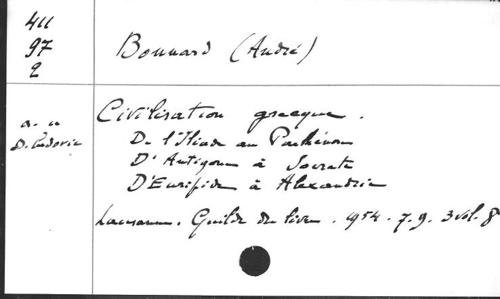 411
97
2
Bonnard (André)
Civilisation grecque.
De l'Iliade au Parthénon
D'Antigone à Socrate
D'Euripide à Alexandrie
Lausanne. Guilde du livre. 1954-7-9. 3 vol. 8